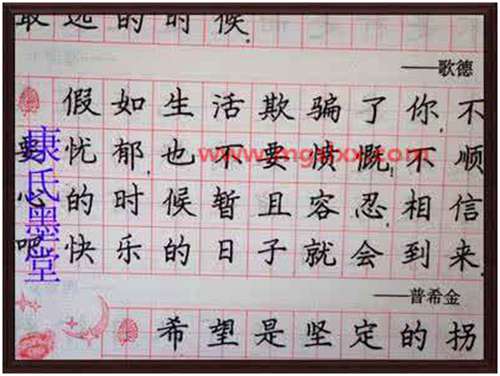 最远的时候.
——歌德
假如生活欺骗了你,不
要忧郁,也不要愤慨!不顺
心的时候暂且容忍,相信
吧,快乐的日子就会到来.
——普希金
希望是坚定的拐
康氏墨堂